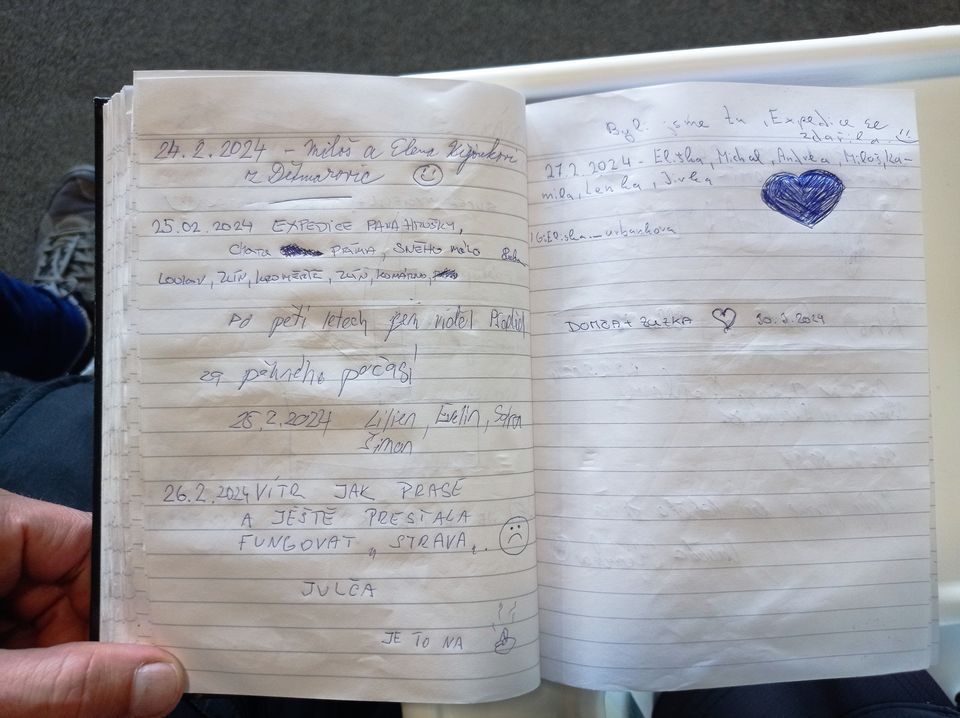 24.2.2024 - Miloš a Elena
z Dětmarovic
25.02.2024 EXPEDICE PANA HRUŠKY,
CHATA PRÁMA, SNĚHO MÁLO
ZLÍN, KROMĚŘÍŽ, ZLÍN, KOMÁRNO,
Po pěti letech jsem viděl
za pěkného počasí!
25.2.2024 Lilien, Evelin,
Šimon
26.2.2024 VÍTR JAK PRASE
A JEŠTĚ PRESTALA
FUNGOVAT „STRAVA"
JULČA
JE TO NA
Byli jsme tu, Expedice se
zdařila.
27.2.2024 - Eliška, Michal, Andrea, Miloš, Ka-
mila, Lenka, Jirka
Eliška Urbankova
DOMČA + ZUZKA 30.3.2024